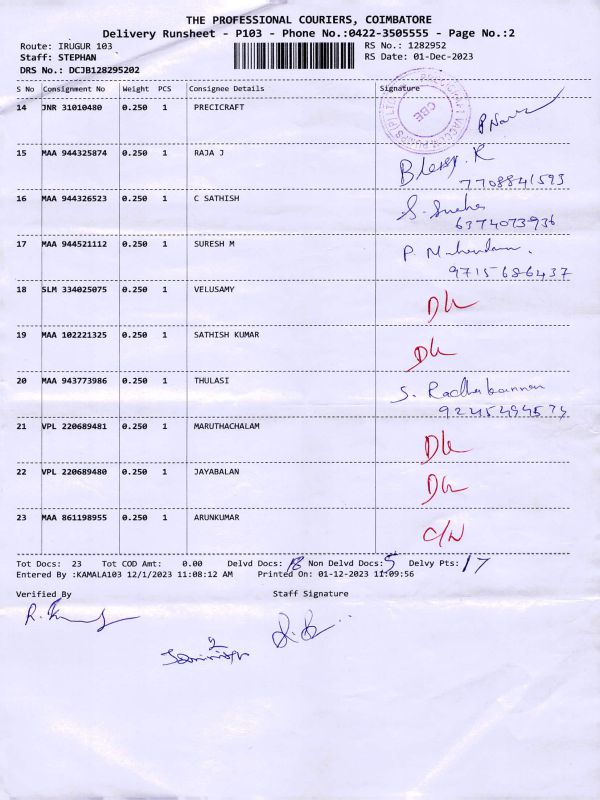 THE PROFESSIONAL COURIERS, COIMBATORE
Delivery Runsheet - P103 - Phone No.:0422-3505555 - Page No.:2
Route: IRUGUR 103 RS No.: 1282952
Staff: STEPHAN RS Date: 01-Dec-2023
DRS No.: DCJB128295202
S No Consignment No Weight PCS Consignee Details Signature
14 JNR 31010480 0.250 1 PRECICRAFT
CBE
15 MAA 944325874 0.250 1 RAJA J Blessy. K
7708841593
16 MAA 944326523 0.250 1 C SATHISH S. Sneha
6374073936
17 MAA 944521112 0.250 1 SURESH M P.
9715686437
18 SLM 334025075 0.250 1 VELUSAMY DL
19 MAA 102221325 0.250 1 SATHISH KUMAR DL
20 MAA 943773986 0.250 1 THULASI S. Radhakannan
21 VPL 220689481 0.250 1 MARUTHACHALAM DL
22 VPL 220689480 0.250 1 JAYABALAN DL
23 MAA 861198955 0.250 1 ARUNKUMAR C/N
Tot Docs: 23 Tot COD Amt: 0.00 Delvd Docs: 18 Non Delvd Docs: 5 Delvy Pts: 17
Entered By :KAMALA103 12/1/2023 11:08:12 AM Printed On: 01-12-2023 11:09:56
Verified By Staff Signature